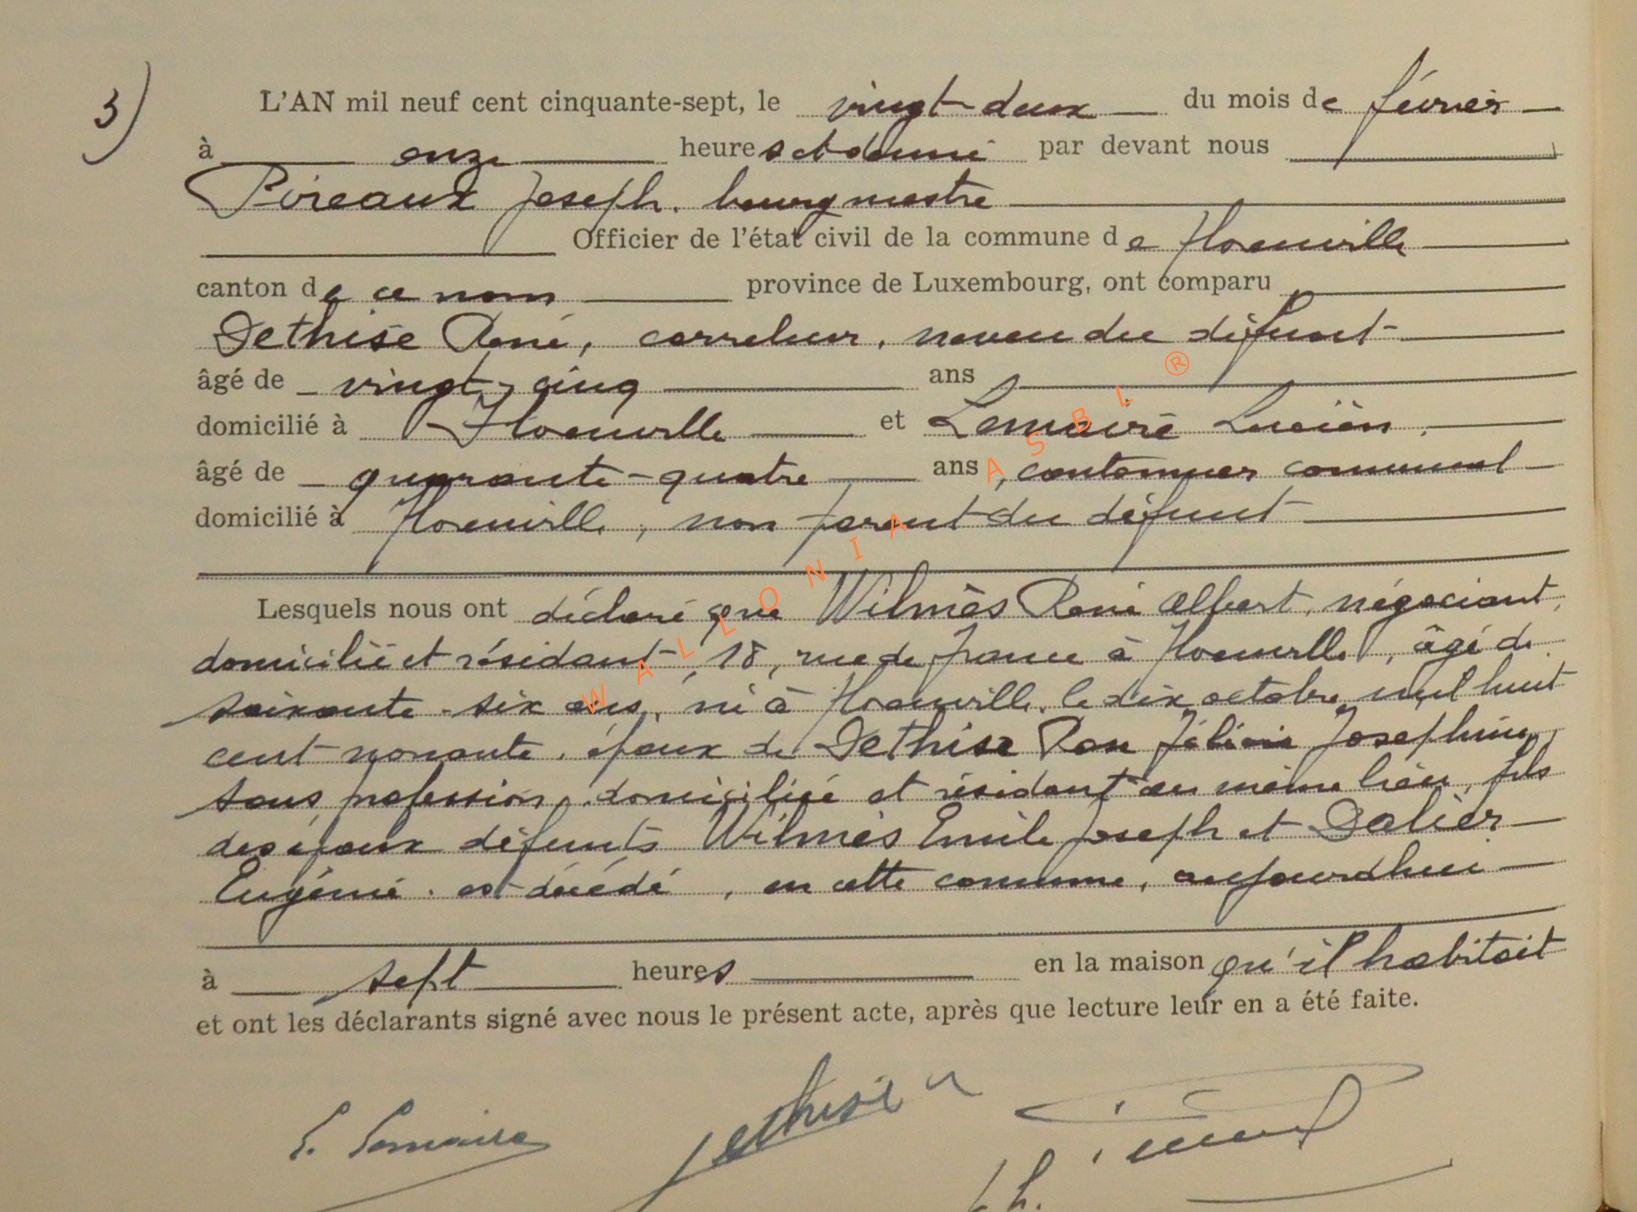 3)
L'AN mil neuf cent cinquante-sept, le vingt-deux du mois de février
à onze heures et demie par devant nous
Pireaux Joseph, bourgmestre
Officier de l'état civil de la commune de Florenville
canton de ce nom province de Luxembourg, ont comparu
Dethise René, carreleur, neveu du défunt
âgé de vingt-cinq ans
domicilié à Florenville et Lemaire Lucien,
âgé de quarante-quatre ans, cantonnier communal
domicilié à Florenville, non parent du défunt
Lesquels nous ont déclaré que Wilmès René Albert, négociant,
domicilié et résidant, 18, rue de France à Florenville, âgé de
soixante-six ans, né à Florenville, le dix octobre mil huit
cent nonante, époux de Dethise Félicie Joséphine,
sans profession, domiciliée et résidant au même lieu, fils
des époux défunts Wilmès Emile Joseph et Dalier
Eugénie, est décédé, en cette commune, aujourd'hui
à sept heures en la maison qu'il habitait
et ont les déclarants signé avec nous le présent acte, après que lecture leur en a été faite.
L. Lemaire Dethise R
WALLONIA ASBL ®